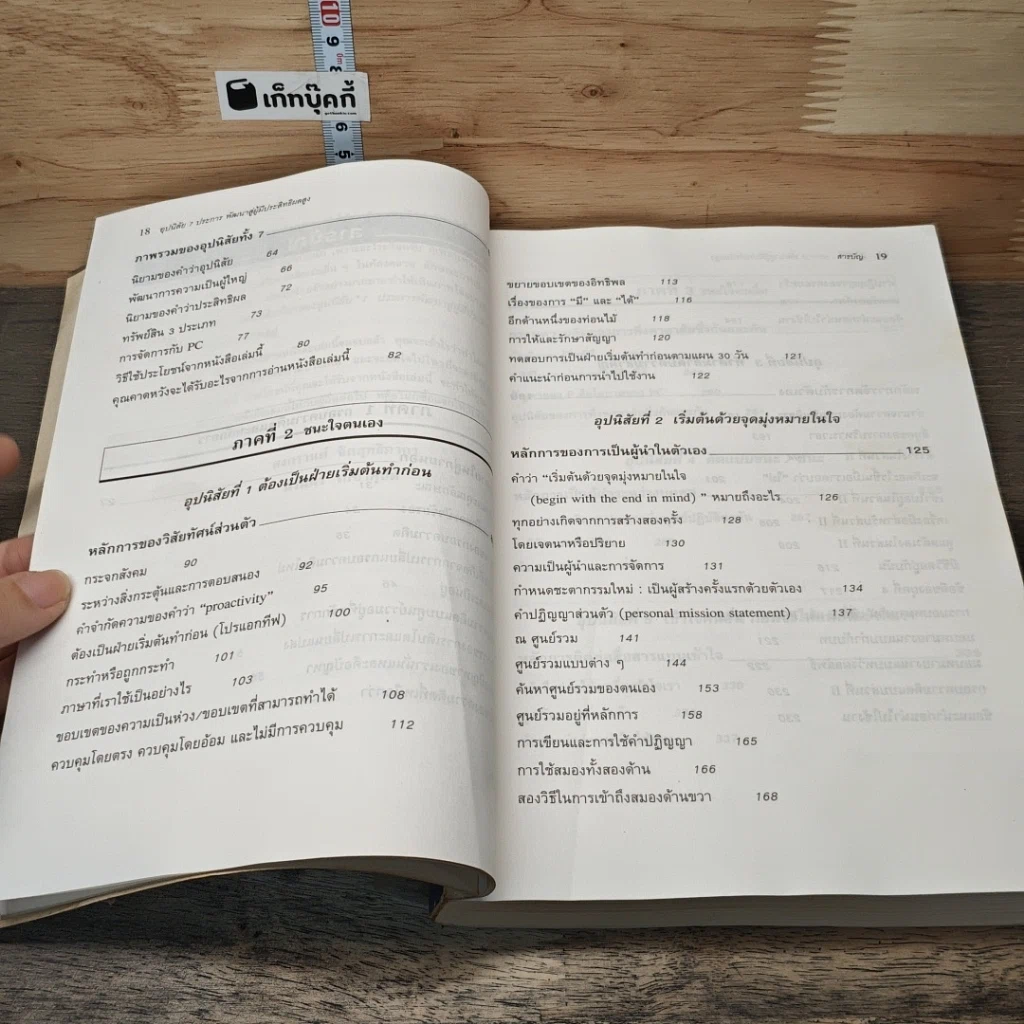 10
9
8
6
5
เก็ทบุ๊คกี้
18 อุปนิสัย 7 ประการ พัฒนาสู่ผู้มีประสิทธิผลสูง
ภาพรวมของอุปนิสัยทั้ง 7
นิยามของคำว่าอุปนิสัย 64
พัฒนาการความเป็นผู้ใหญ่ 66
นิยามของคำว่าประสิทธิผล 72
ทรัพย์สิน 3 ประเภท 73
การจัดการกับ PC 77
วิธีใช้ประโยชน์จากหนังสือเล่มนี้ 80
คุณคาดหวังจะได้รับอะไรจากการอ่านหนังสือเล่มนี้ 82
ภาคที่ 2 ชนะใจตนเอง
อุปนิสัยที่ 1 ต้องเป็นฝ่ายเริ่มต้นทำก่อน
หลักการของวิสัยทัศน์ส่วนตัว
กระจกสังคม 90
ระหว่างสิ่งกระตุ้นและการตอบสนอง 92
คำจำกัดความของคำว่า “proactivity” 95
ต้องเป็นฝ่ายเริ่มต้นทำก่อน (โปรแอกทีฟ) 100
กระทำหรือถูกกระทำ 101
ภาษาที่เราใช้เป็นอย่างไร 103
ขอบเขตของความเป็นห่วง/ขอบเขตที่สามารถทำได้ 108
ควบคุมโดยตรง ควบคุมโดยอ้อม และไม่มีการควบคุม 112
สารบัญ 19
ขยายขอบเขตของอิทธิพล 113
เรื่องของการ “มี” และ “ได้” 116
อีกด้านหนึ่งของท่อนไม้ 118
การให้และรักษาสัญญา 120
ทดสอบการเป็นฝ่ายเริ่มต้นทำก่อนตามแผน 30 วัน 121
คำแนะนำก่อนการนำไปใช้งาน 122
อุปนิสัยที่ 2 เริ่มต้นด้วยจุดมุ่งหมายในใจ
หลักการของการเป็นผู้นำในตัวเอง 125
คำว่า “เริ่มต้นด้วยจุดมุ่งหมายในใจ
(begin with the end in mind) ” หมายถึงอะไร 126
ทุกอย่างเกิดจากการสร้างสองครั้ง 128
โดยเจตนาหรือปริยาย 130
ความเป็นผู้นำและการจัดการ 131
กำหนดชะตากรรมใหม่ : เป็นผู้สร้างครั้งแรกด้วยตัวเอง 134
คำปฏิญญาส่วนตัว (personal mission statement) 137
ณ ศูนย์รวม 141
ศูนย์รวมแบบต่าง ๆ 144
ค้นหาศูนย์รวมของตนเอง 153
ศูนย์รวมอยู่ที่หลักการ 158
การเขียนและการใช้คำปฏิญญา 165
การใช้สมองทั้งสองด้าน 166
สองวิธีในการเข้าถึงสมองด้านขวา 168